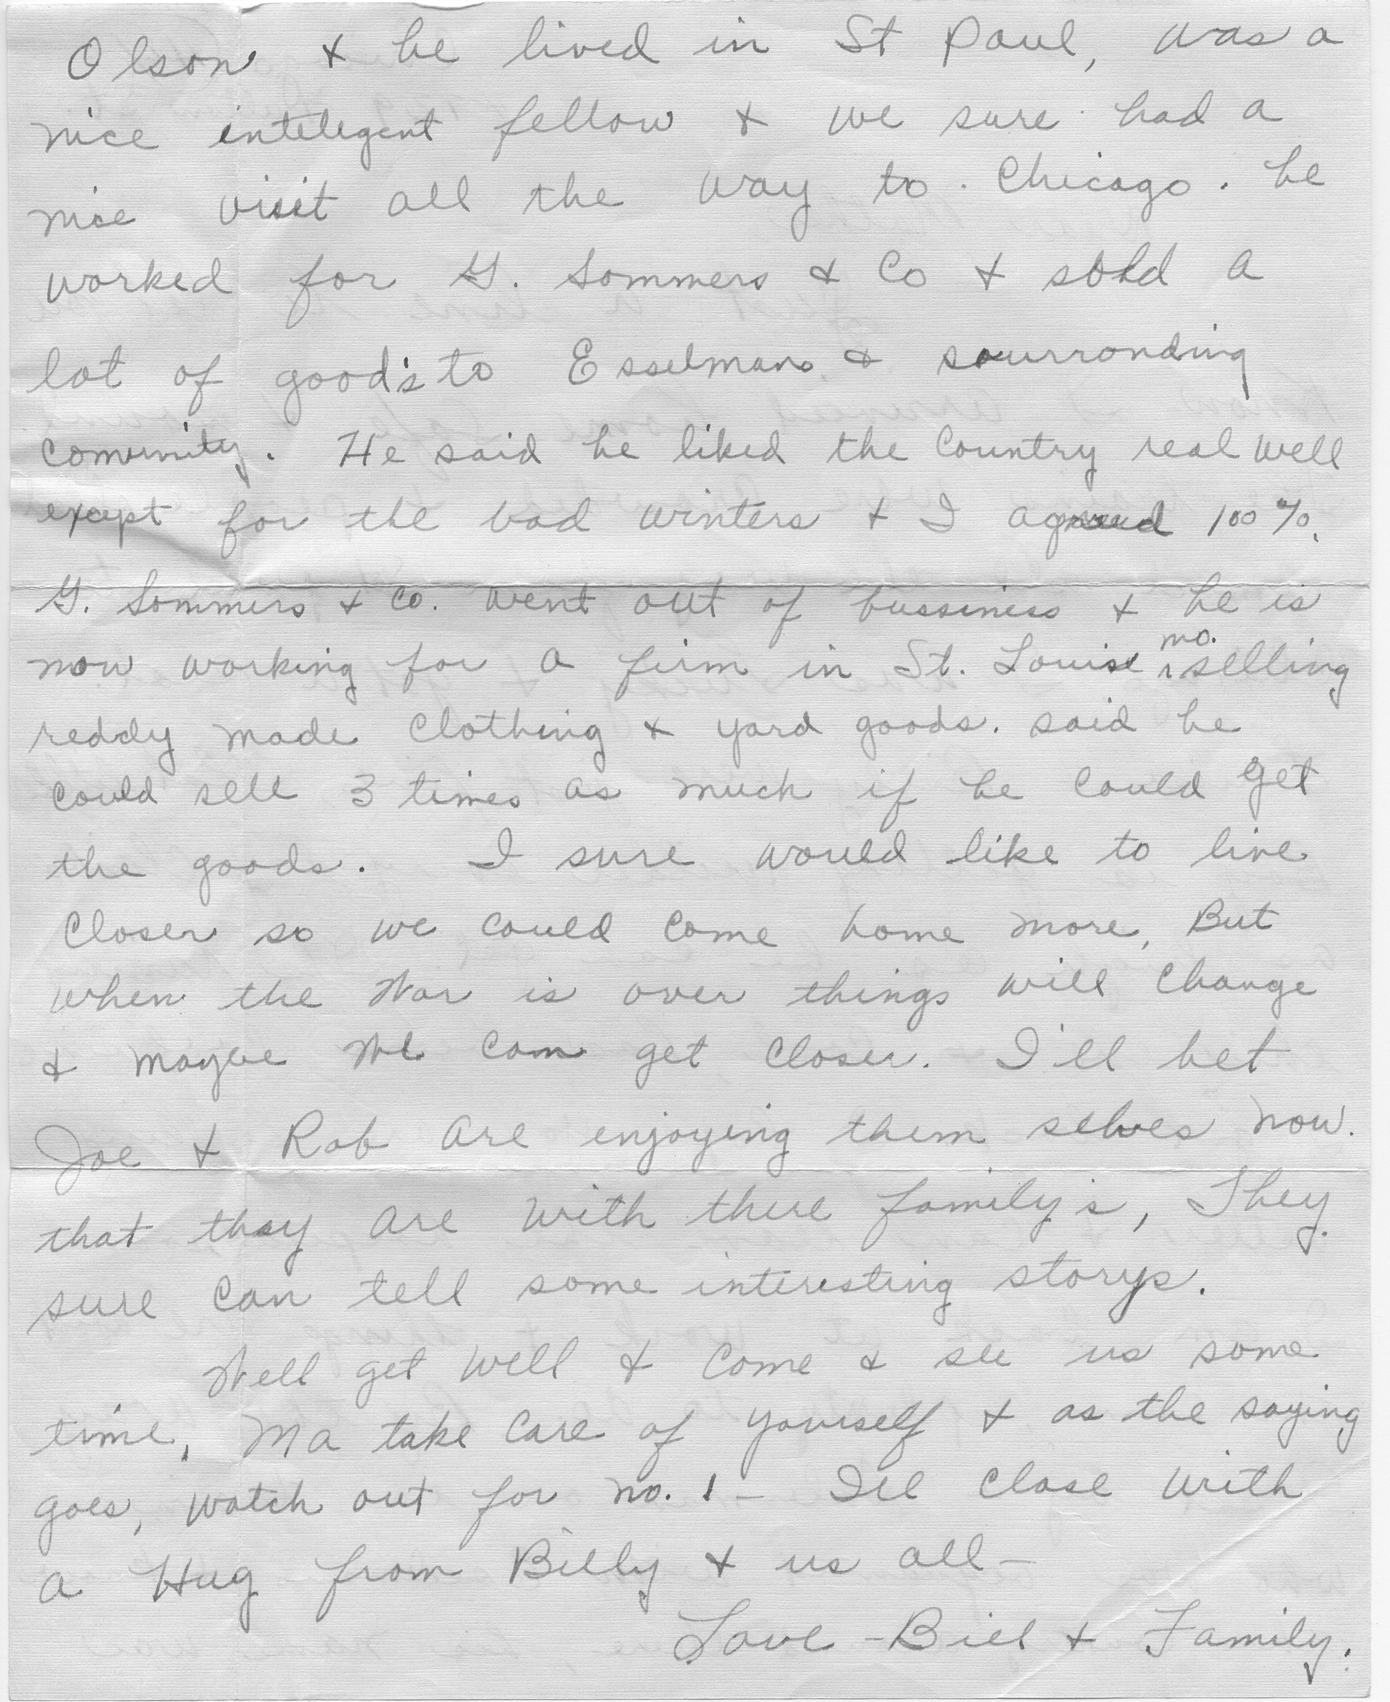 Olson & he lived in St Paul, was a
nice intelegent fellow & we sure had a
nice visit all the way to Chicago. he
worked for G. Sommers & Co & sold a
lot of good's to Esselmans & sourronding
comunity. He said he liked the Country real well
except for the bad winters & I agreed 100%.
G. Sommers & Co. went out of bussiniss & he is
mo.
now working for a firm in St. Louise selling
reddy made clothing & yard goods. said he
could sell 3 times as much if he could get
the goods. I sure would like to live
closer so we could come home more, But
when the War is over things will change
& maybe We can get closer. I'll bet
Joe & Rob are enjoying them selves now.
that they are with there family's, They
sure can tell some interesting storys.
Well get well & come & see us some
time, Ma take care of yourself & as the saying
goes, watch out for no. 1 - Ill close with
a Hug from Billy & us all -
Love - Bill & Family.